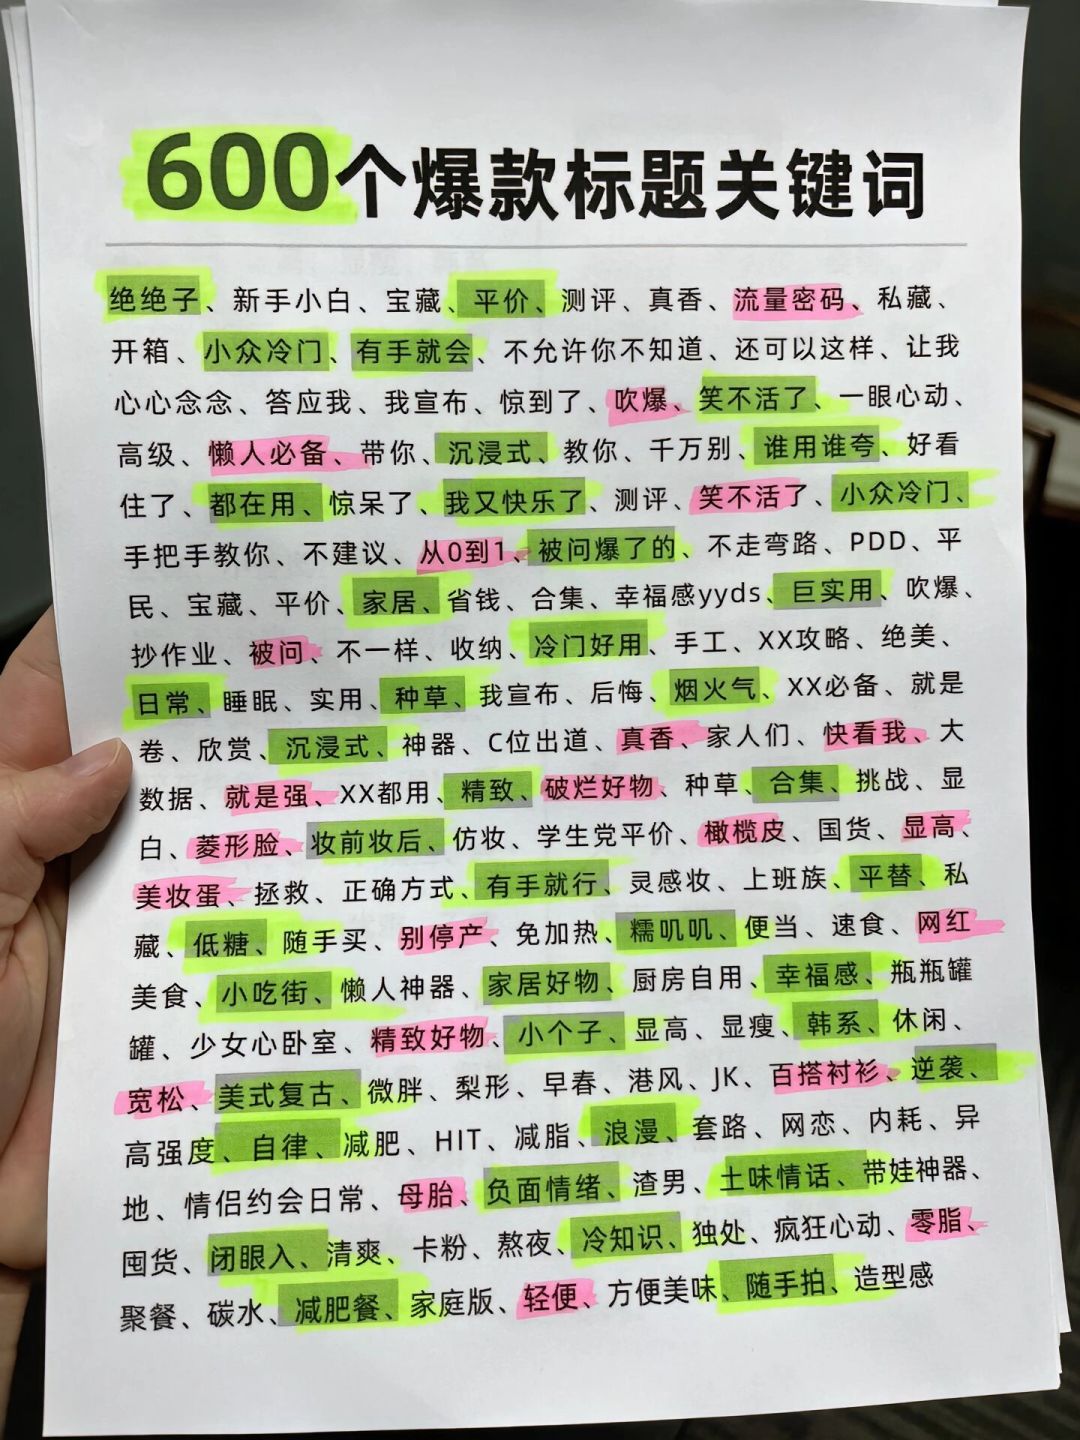 600个爆款标题关键词
绝绝子、新手小白、宝藏、平价、测评、真香、流量密码、私藏、
开箱、小众冷门、有手就会、不允许你不知道、还可以这样、让我
心心念念、答应我、我宣布、惊到了、吹爆、笑不活了、一眼心动、
高级、懒人必备、带你、沉浸式、教你、千万别、谁用谁夸、好看
住了、都在用、惊呆了、我又快乐了、测评、笑不活了、小众冷门、
手把手教你、不建议、从0到1、被问爆了的、不走弯路、PDD、平
民、宝藏、平价、家居、省钱、合集、幸福感yyds、巨实用、吹爆、
抄作业、被问、不一样、收纳、冷门好用、手工、XX攻略、绝美、
日常、睡眠、实用、种草、我宣布、后悔、烟火气、XX必备、就是
卷、欣赏、沉浸式、神器、C位出道、真香、家人们、快看我、大
数据、就是强、XX都用、精致、破烂好物、种草、合集、挑战、显
白、菱形脸、妆前妆后、仿妆、学生党平价、橄榄皮、国货、显高、
美妆蛋、拯救、正确方式、有手就行、灵感妆、上班族、平替、私
藏、低糖、随手买、别停产、免加热、糯叽叽、便当、速食、网红
美食、小吃街、懒人神器、家居好物、厨房自用、幸福感、瓶瓶罐
罐、少女心卧室、精致好物、小个子、显高、显瘦、韩系、休闲、
宽松、美式复古、微胖、梨形、早春、港风、JK、百搭衬衫、逆袭、
高强度、自律、减肥、HIT、减脂、浪漫、套路、网恋、内耗、异
地、情侣约会日常、母胎、负面情绪、渣男、土味情话、带娃神器、
囤货、闭眼入、清爽、卡粉、熬夜、冷知识、独处、疯狂心动、零脂、
聚餐、碳水、减肥餐、家庭版、轻便、方便美味、随手拍、造型感